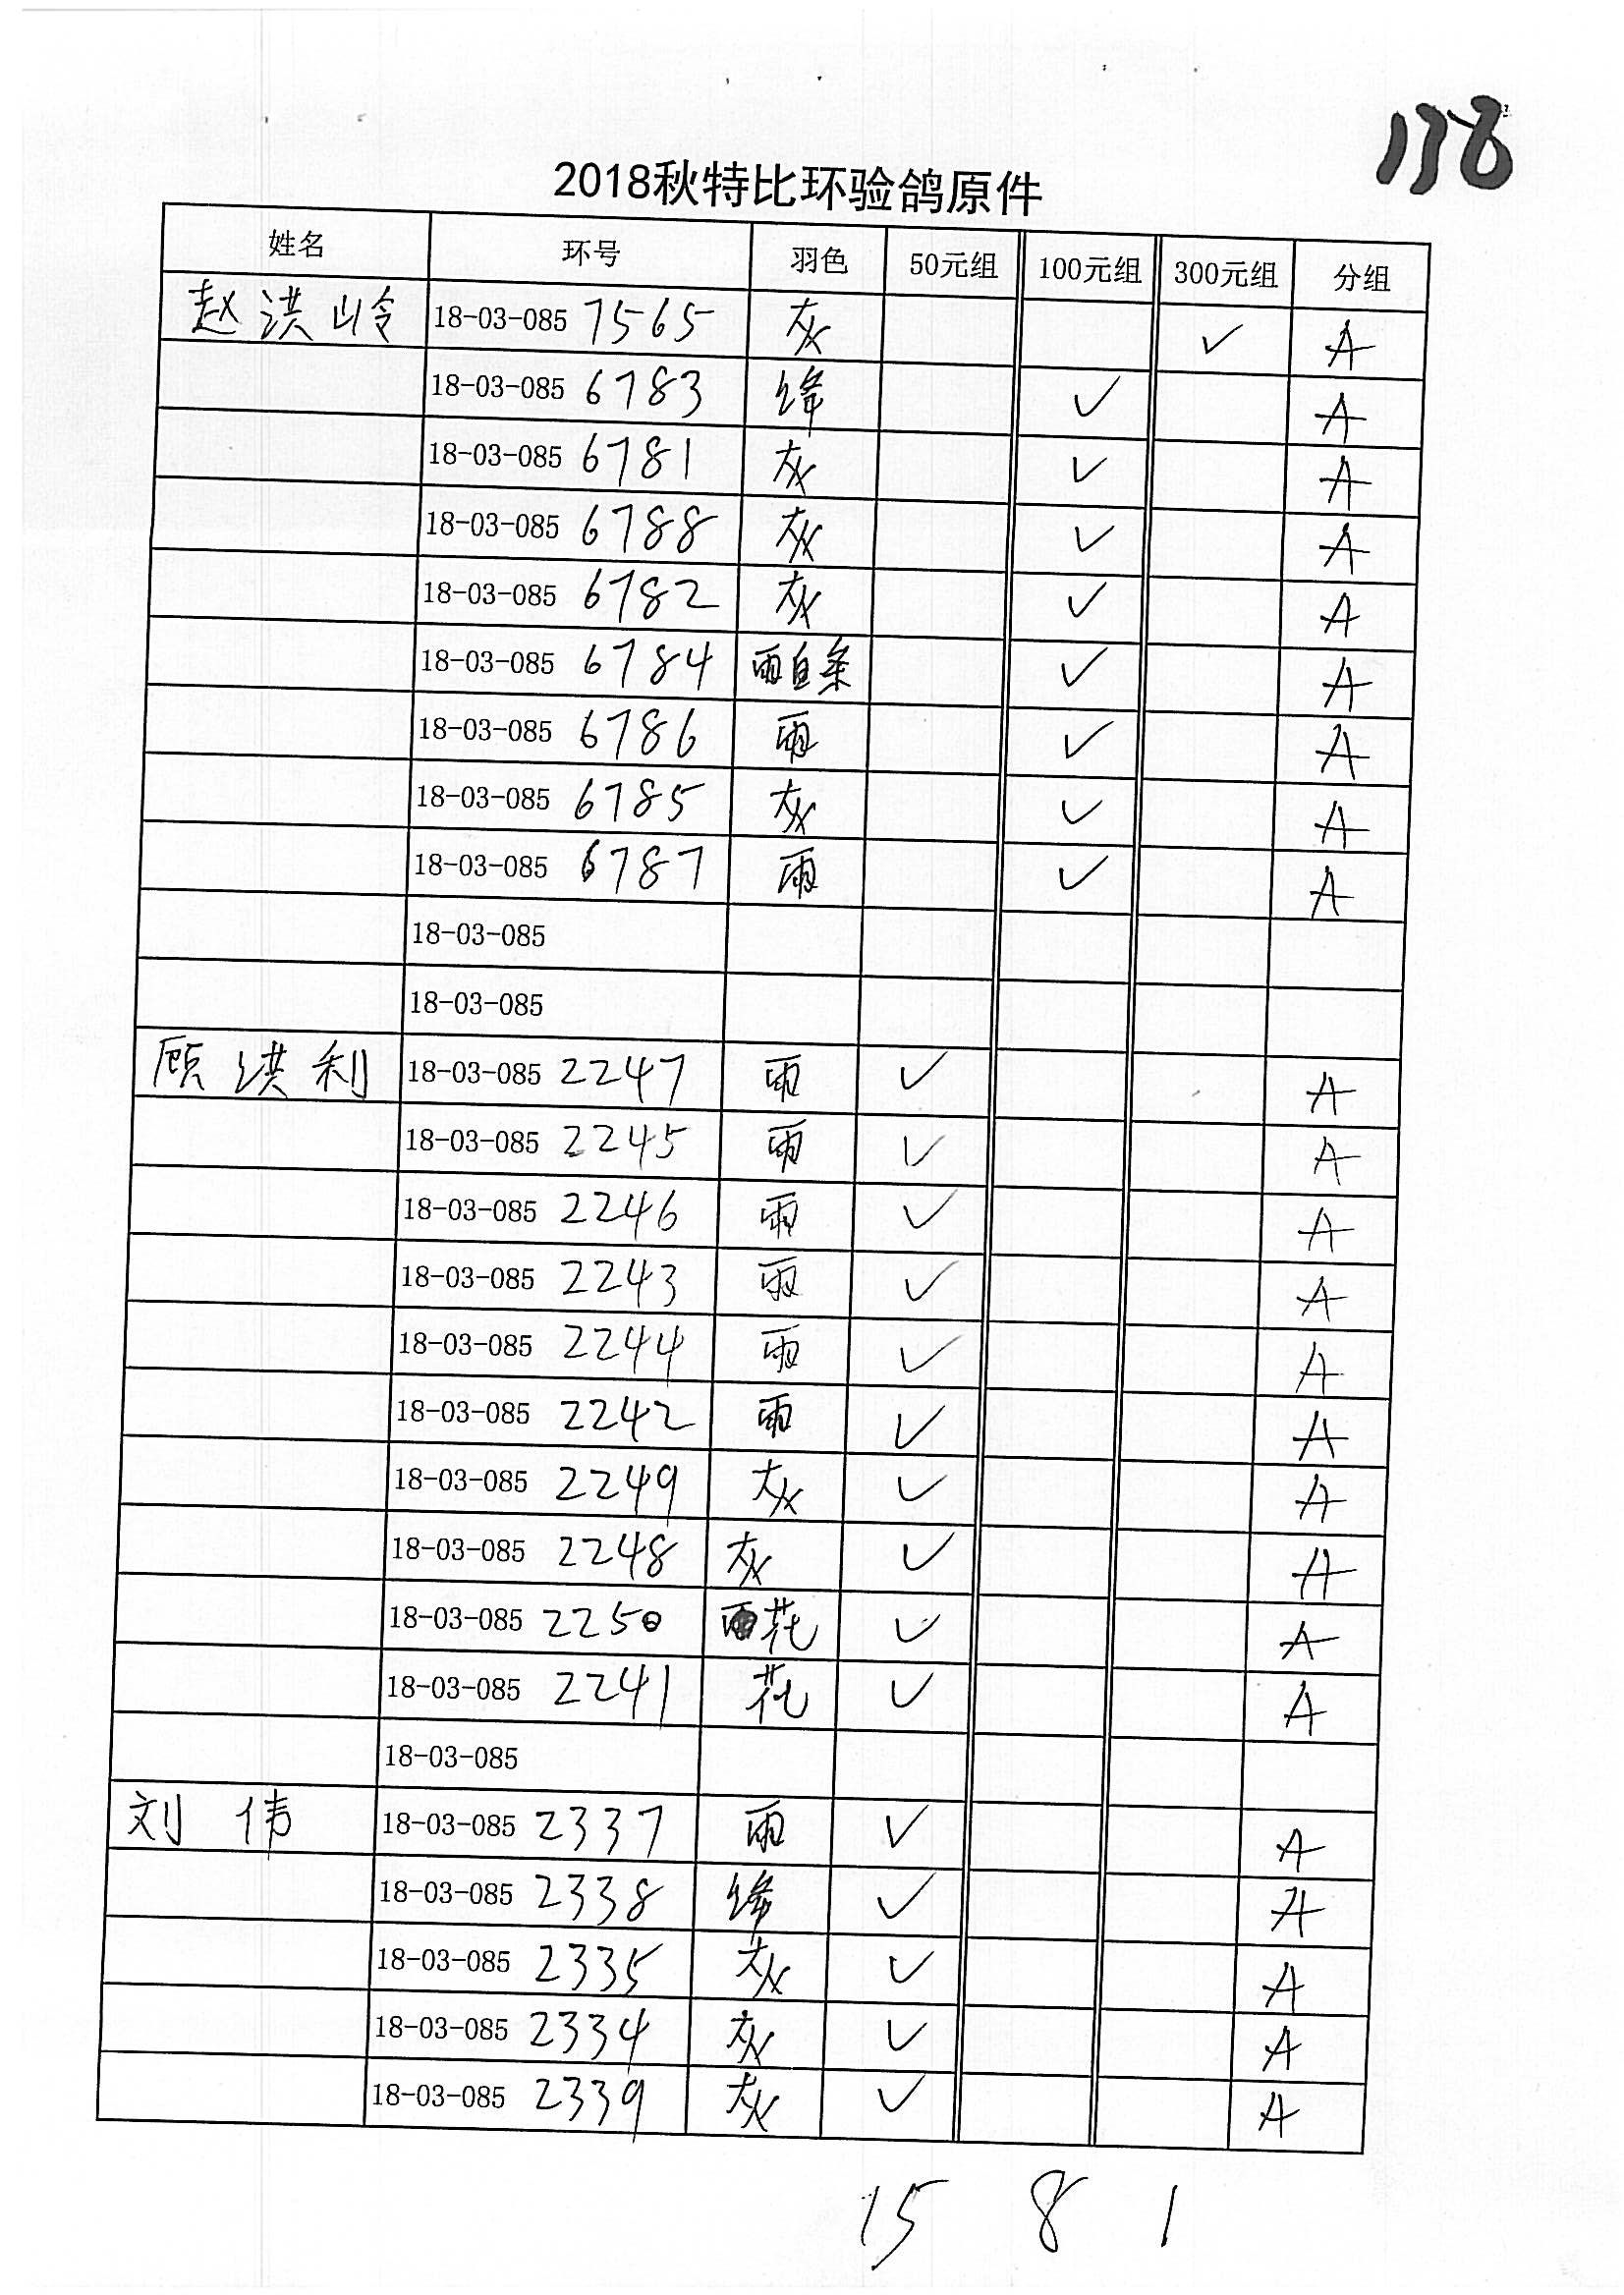 138
2018秋特比环验鸽原件
姓名 环号 羽色 50元组 100元组 300元组 分组
赵洪岭 18-03-085 7565 灰 ✓ A
18-03-085 6783 绛 ✓ A
18-03-085 6781 灰 ✓ A
18-03-085 6788 灰 ✓ A
18-03-085 6782 灰 ✓ A
18-03-085 6784 雨白条 ✓ A
18-03-085 6786 雨 ✓ A
18-03-085 6785 灰 ✓ A
18-03-085 6787 雨 ✓ A
18-03-085
18-03-085
顾洪利 18-03-085 2247 雨 ✓ A
18-03-085 2245 雨 ✓ A
18-03-085 2246 雨 ✓ A
18-03-085 2243 雨 ✓ A
18-03-085 2244 雨 ✓ A
18-03-085 2242 雨 ✓ A
18-03-085 2249 灰 ✓ A
18-03-085 2248 灰 ✓ A
18-03-085 2250 雨花 ✓ A
18-03-085 2241 花 ✓ A
18-03-085
刘伟 18-03-085 2337 雨 ✓ A
18-03-085 2338 绛 ✓ A
18-03-085 2335 灰 ✓ A
18-03-085 2334 灰 ✓ A
18-03-085 2339 灰 ✓ A
15 8 1